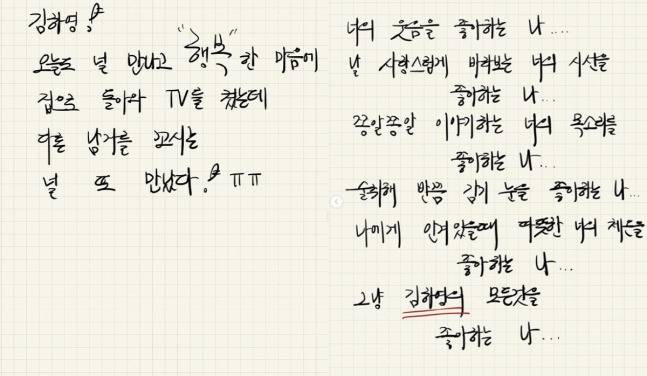 김하영!
오늘도 널 만나고 "행복"한 마음에
집으로 돌아와 TV를 켰는데
다른 남자를 꼬시는
널 또 만났다! ㅠㅠ
너의 웃음을 좋아하는 나....
날 사랑스럽게 바라보는 너의 시선을
좋아하는 나...
쫑알쫑알 이야기하는 너의 목소리를
좋아하는 나...
술취해 반쯤 감긴 눈을 좋아하는 나...
나에게 안겨있을때 따뜻한 너의 체온을
좋아하는 나...
그냥 김하영의 모든것을
좋아하는 나...